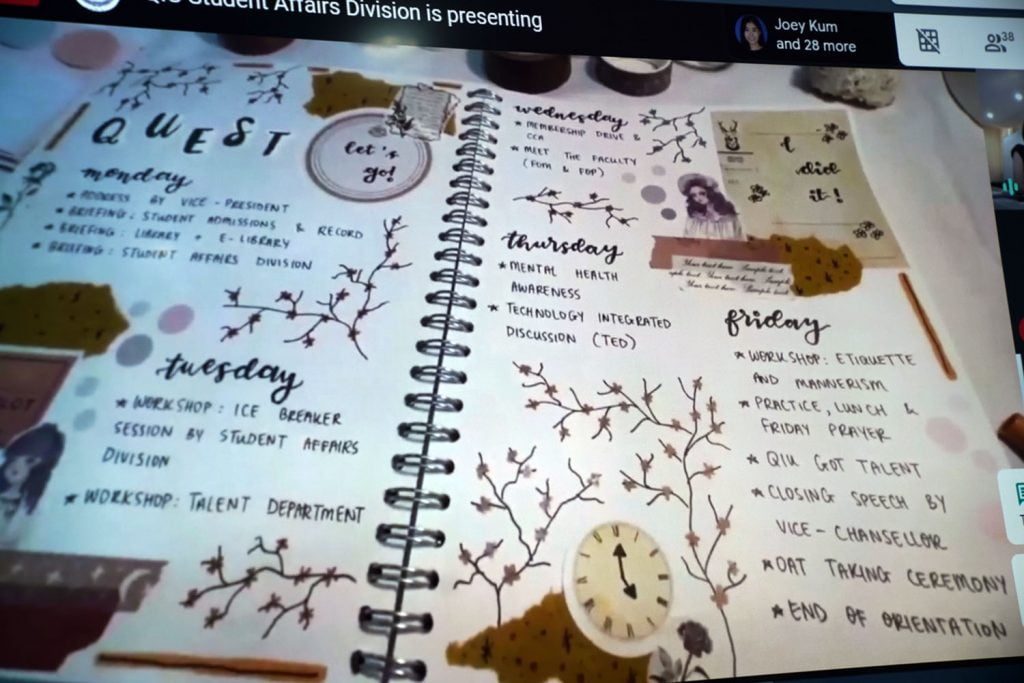 QIU Student Affairs Division is presenting
Joey Kum
and 28 more
38
QUEST
let's
go!
monday
* ADDRESS BY VICE-PRESIDENT
* BRIEFING: STUDENT ADMISSIONS & RECORD
* BRIEFING: LIBRARY + E-LIBRARY
* BRIEFING: STUDENT AFFAIRS DIVISION
tuesday
* WORKSHOP: ICE BREAKER
SESSION BY STUDENT AFFAIRS
DIVISION
* WORKSHOP: TALENT DEPARTMENT
wednesday
* MEMBERSHIP DRIVE &
CCA
* MEET THE FACULTY
(FOM & FOP)
I
did
it!
thursday
* MENTAL HEALTH
AWARENESS
* TECHNOLOGY INTEGRATED
DISCUSSION (TED)
Your text here Sample text
Your text here Sample
Your text here
friday
* WORKSHOP: ETIQUETTE
AND MANNERISM
* PRACTICE, LUNCH &
FRIDAY PRAYER
* QIU GOT TALENT
* CLOSING SPEECH BY
VICE-CHANSELLOR
* OAT TAKING CEREMONY
* END OF ORIENTATION